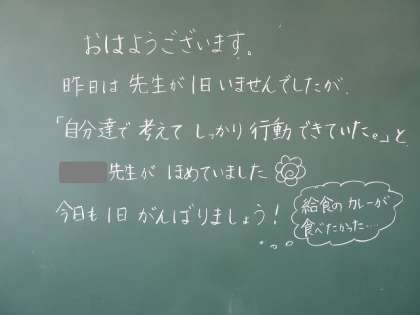 おはようございます。
昨日は先生が1日いませんでしたが、
「自分達で考えてしっかり行動できていた。」と、
先生がほめていました
今日も1日がんばりましょう!
給食のカレーが
食べたかった....